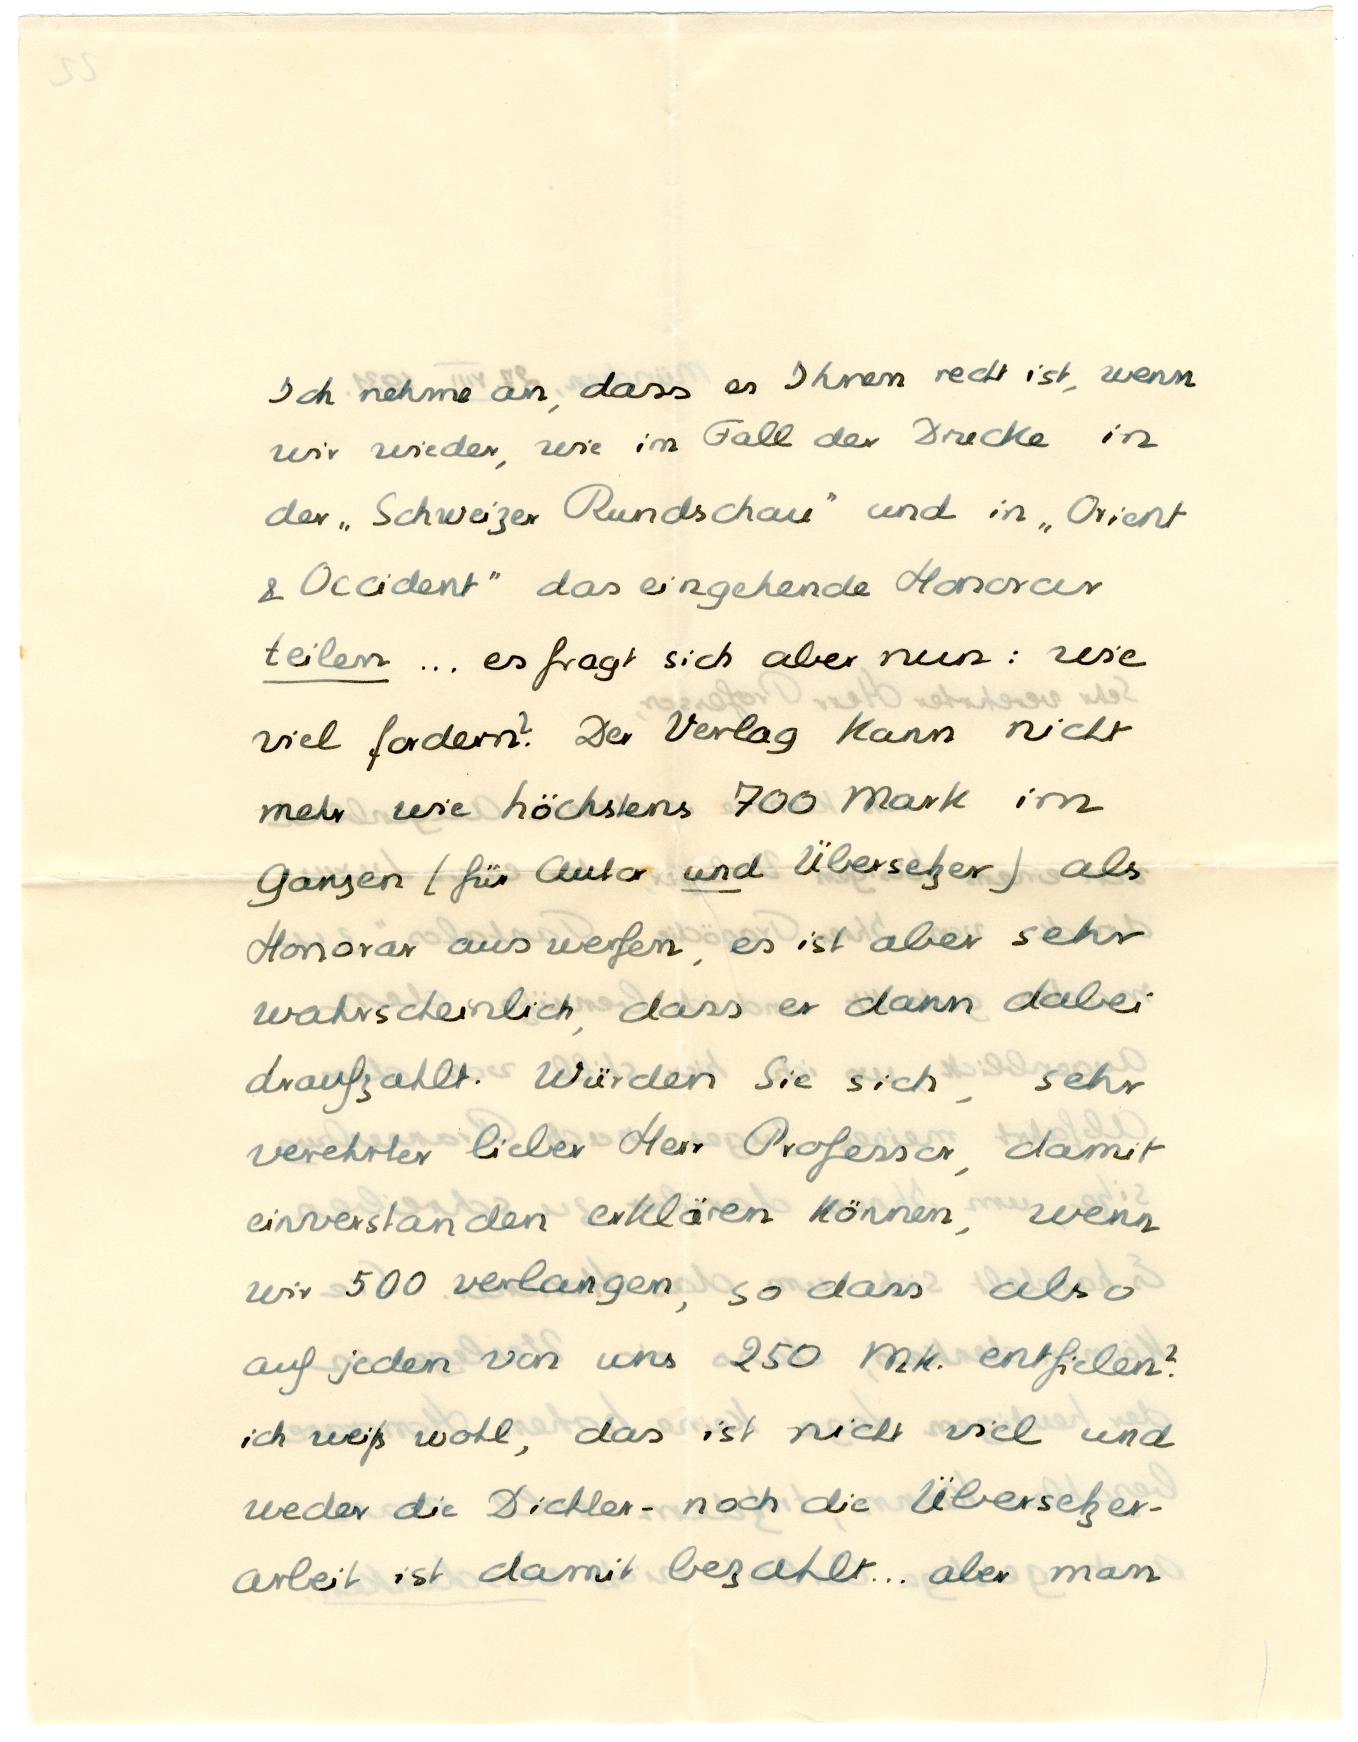 Ich nehme an, dass es Ihnen recht ist, wenn
wir wieder, wie im Fall der Drucke in
der „Schweizer Rundschau" und in „Orient
& Occident" das eingehende Honorar
teilen ... es fragt sich aber nun: wie
viel fordern? Der Verlag kann nicht
mehr wie höchstens 700 Mark im
Ganzen (für Autor und Übersetzer) als
Honorar auswerfen, es ist aber sehr
wahrscheinlich, dass er dann dabei
draufzahlt. Würden Sie sich, sehr
verehrter lieber Herr Professor, damit
einverstanden erklären können, wenn
wir 500 verlangen, so dass also
auf jeden von uns 250 Mk. entfielen?
ich weiß wohl, das ist nicht viel und
weder die Dichter- noch die Übersetzer-
arbeit ist damit bezahlt... aber man